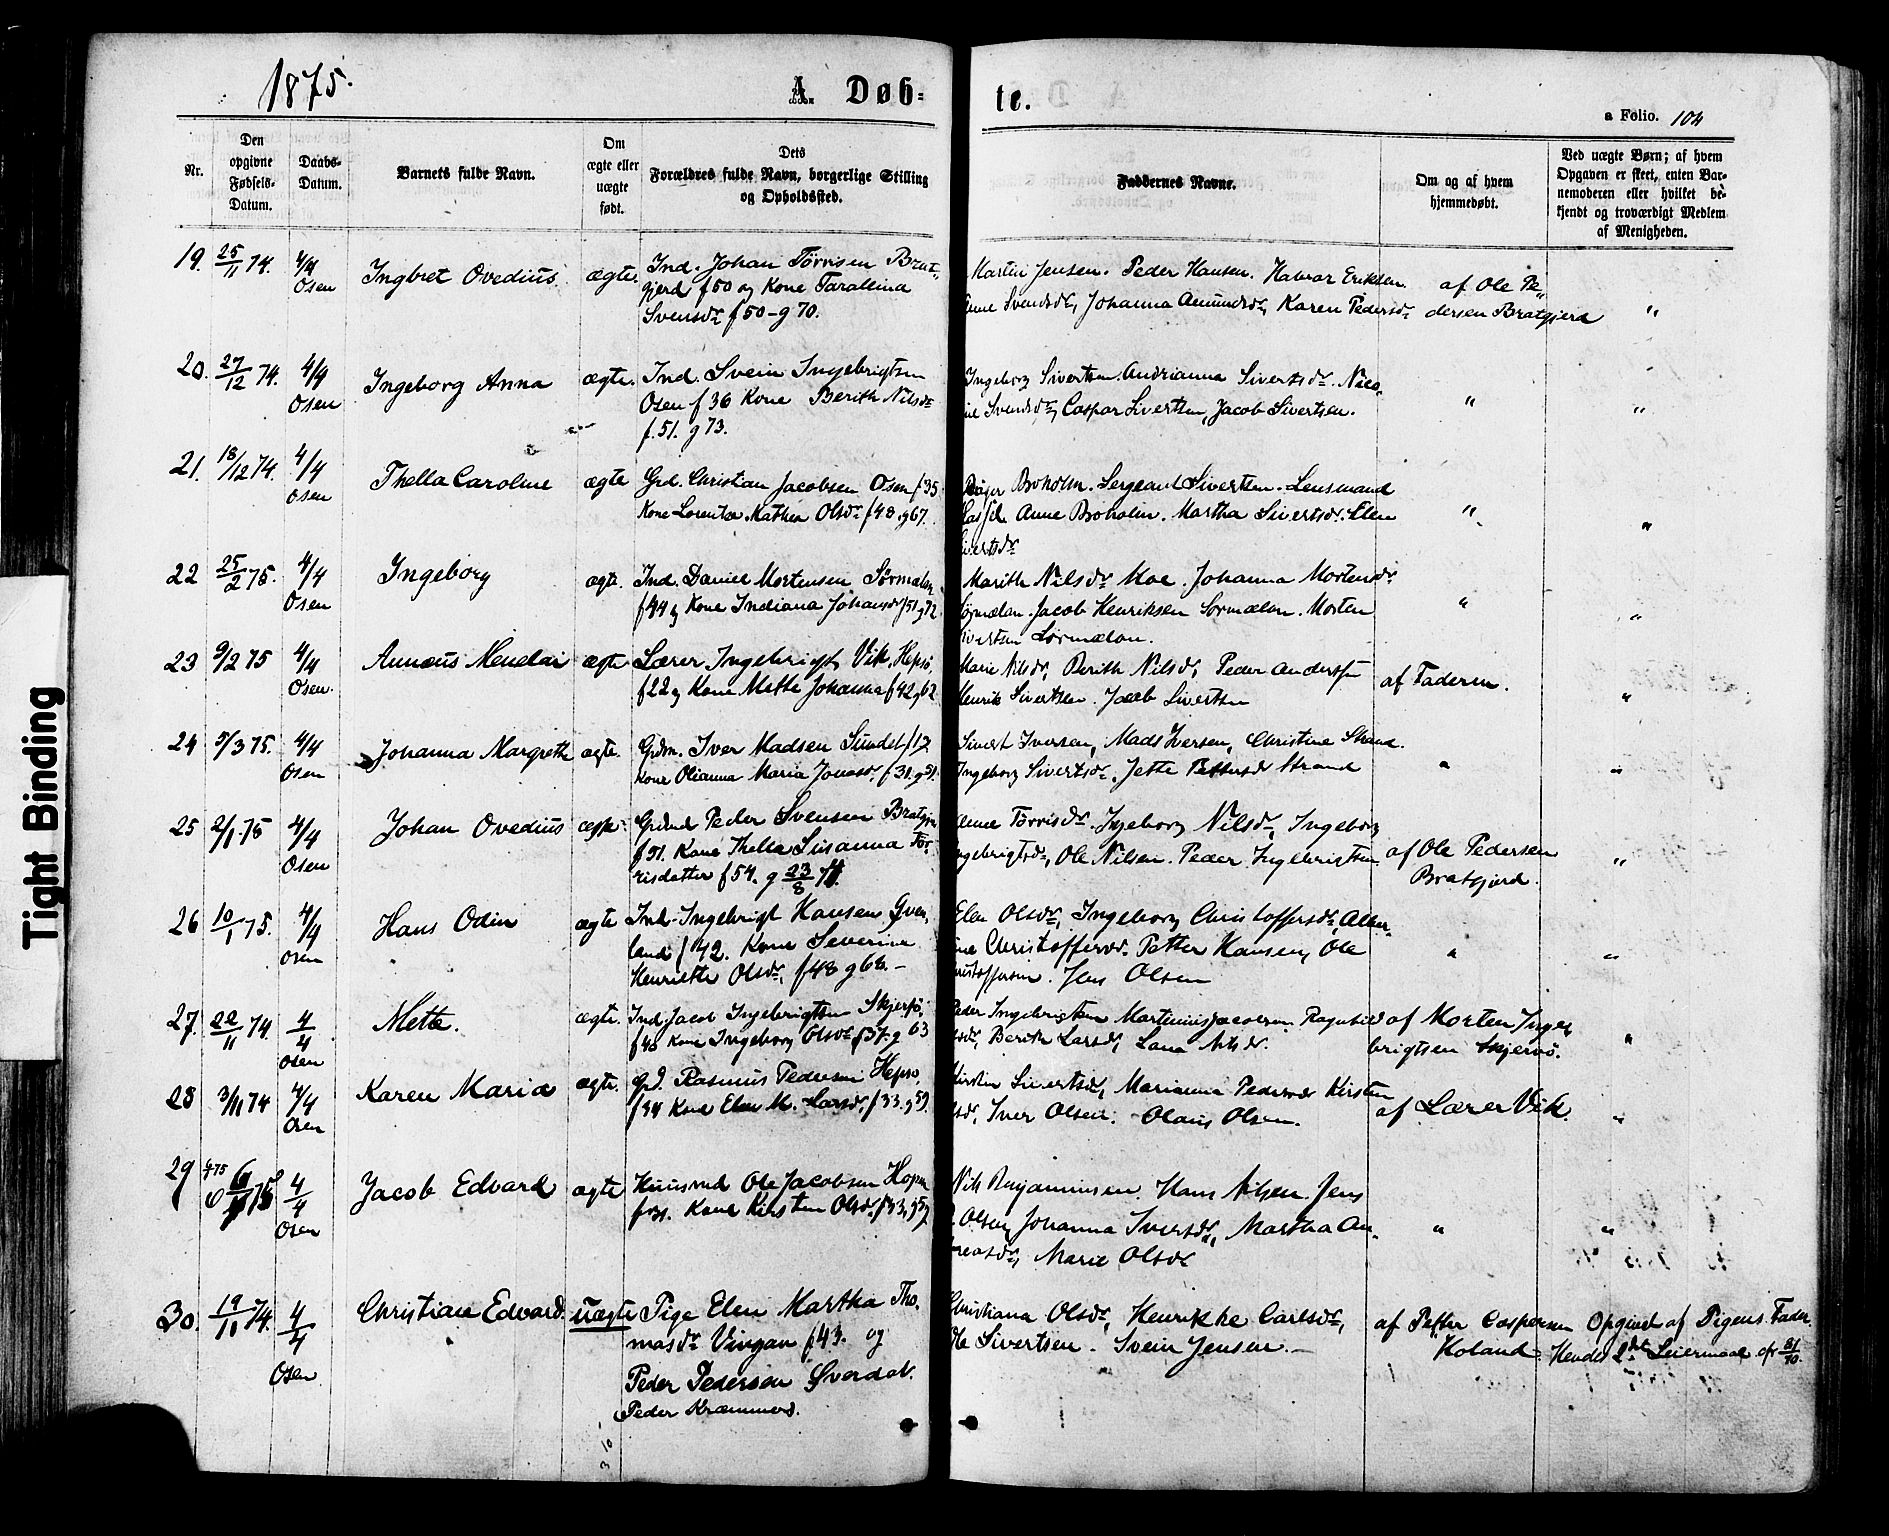 1875.
A. Døb-
te.
a Folio. 104
Nr.
Den
opgivne
Fødsels-
Datum.
Daabs-
Datum.
Barnets fulde Navn.
Om
ægte eller
uægte
født.
Dets
Forældres fulde Navn, borgerlige Stilling
og Opholdssted.
Faddernes Navne.
Om og af hvem
hjemmedøbt.
Ved uægte Børn; af hvem
Opgaven er skeet, enten Bar-
nemoderen eller hvilket be-
kjendt og troværdigt Medlem
af Menigheden.
19. 25/11 74. 4/4 Osen
Ingbret Ovedius
ægte.
Ind. Johan Törrisen Brat-
gjerd f 50 og Kone Tarallina
Svensdr f 50 - g 70.
Martin Jensen. Peder Hansen. Havar Eriksen
Svendsdr, Johanna Amundsdr, Karen Pedersdr
af Ole Pe-
dersen Bratgjerd
"
20. 27/12 74. 4/4 Osen
Ingeborg Anna
ægte.
Ind. Svein Ingebrigtsen
Osen f 36 Kone Berith Nilsdr
f. 51. g 73.
Ingeborg Sivertsen. Andrianna Sivertsdr. Nico-
Svendsdr, Caspar Sivertsen, Jacob Sivertsen.
"
"
21. 18/12 74. 4/4 Osen
Thella Caroline
ægte
Grd. Christian Jacobsen Osen f 35
Kone Lorentza Mathea Olsdr f 48. g 67.
Broholm. Sergeant Sivertsen. Lensmand
Anne Broholm. Martha Sivertsdr. Elen
Sivertsdr
"
"
22 25/2 75. 4/4 Osen
Ingeborg
ægte.
Ind. Daniel Mortensen Sörmælan
f 44 og Kone Indiana Johansdr f 51 g 72.
Marith Nilsdr Moe. Johanna Mortensdr
Sörmælan. Jacob Henriksen Sörmælan. Morten
Sivertsen Sörmælan.
"
"
23 9/2 75 4/4 Osen.
Annæus Mendar
ægte
Lærer Ingebrigt Vik, Hepsö,
f 22 og Kone Mette Johanna f 42 g 62
Marie Nilsdr, Berith Nilsdr, Peder Andersen
Henrik Sivertsen. Jacob Sivertsen
af Faderen.
"
24 5/3 75. 4/4 Osen
Johanna Margreth
ægte.
Grdm. Iver Madsen Sundet f 17
Kone Olianna Maria Jonasdr. f 31. g 51.
Sivert Iversen, Mads Iversen, Christine Strand.
Ingeborg Sivertsdr. Jette Pettersdr Strand
"
"
25 2/1 75 4/4 Osen
Johan Ovedius
ægte.
Grdmd Peder Svensen Bratgjer
f 51. Kone Thella Susanna Tör-
risdatter f 54. g 23/8 74.
Anne Törrisdr. Ingeborg Nilsdr, Ingeborg
Ingebrigtsdr, Ole Nilsen. Peder Ingebrigtsen
af Ole Pedersen
Bratgjerd.
"
26 10/1 75. 4/4 Osen
Hans Odin
ægte
Ind. Ingebrigt Hansen Qven-
land f 42. Kone Severine
Henriette Olsdr, f 48 g 68. -
Elen Olsdr, Ingeborg Christoffersdr, Allen-
ine Christoffersdr. Petter Hansen, Ole
Christoffersen. Jens Olsen
"
"
27. 22/11 74. 4/4 Osen
Mette.
ægte.
Ind. Jacob Ingebrigtsen Skjervö,
f 40 Kone Ingeborg Olsdr f 37. g 63
Peder Ingebrigtsen Martinus Jacobsen. Ragnhild
Berith Larsdr, Lana Nilsdr.
af Morten Inge-
brigtsen Skjervö.
"
28 3/11 74 4/4 Osen
Karen Maria
ægte.
Grd. Rasmus Pedersen Hepsö,
f 34 Kone Elen M. Larsdr, f 33. g 59.
Kirsten Sivertsdr, Marianna Pedersdr Kirsten
Olsdr, Iver Olsen. Olaus Olsen.
af Lærer Vik.
"
29 6/1 75 4/4 Osen
Jacob Edvard
ægte
Huusmd Ole Jacobsen Hopen
f 31. Kone Kirsten Olsdr. f 33, g 59
Nils Benjaminsen. Hans Nilsen. Jens
Olsen, Johanna Iversdr, Martha An-
dreasdr, Marie Olsdr
"
"
30. 19/11 74. 4/4 Osen
Christian Edvard
uægte
Pige Elen Martha Tho-
masdr Vingan f 43. og
Peder Pedersen Sverdal.
Peder Kræmmers.
Christiana Olsdr, Henrikke Carlsdr,
Ole Sivertsen. Svein Jensen. -
af Petter Caspersen
Holand.
Opgivet af Pigens Fader.
Hendes 2det Leiermaal
Tight Binding